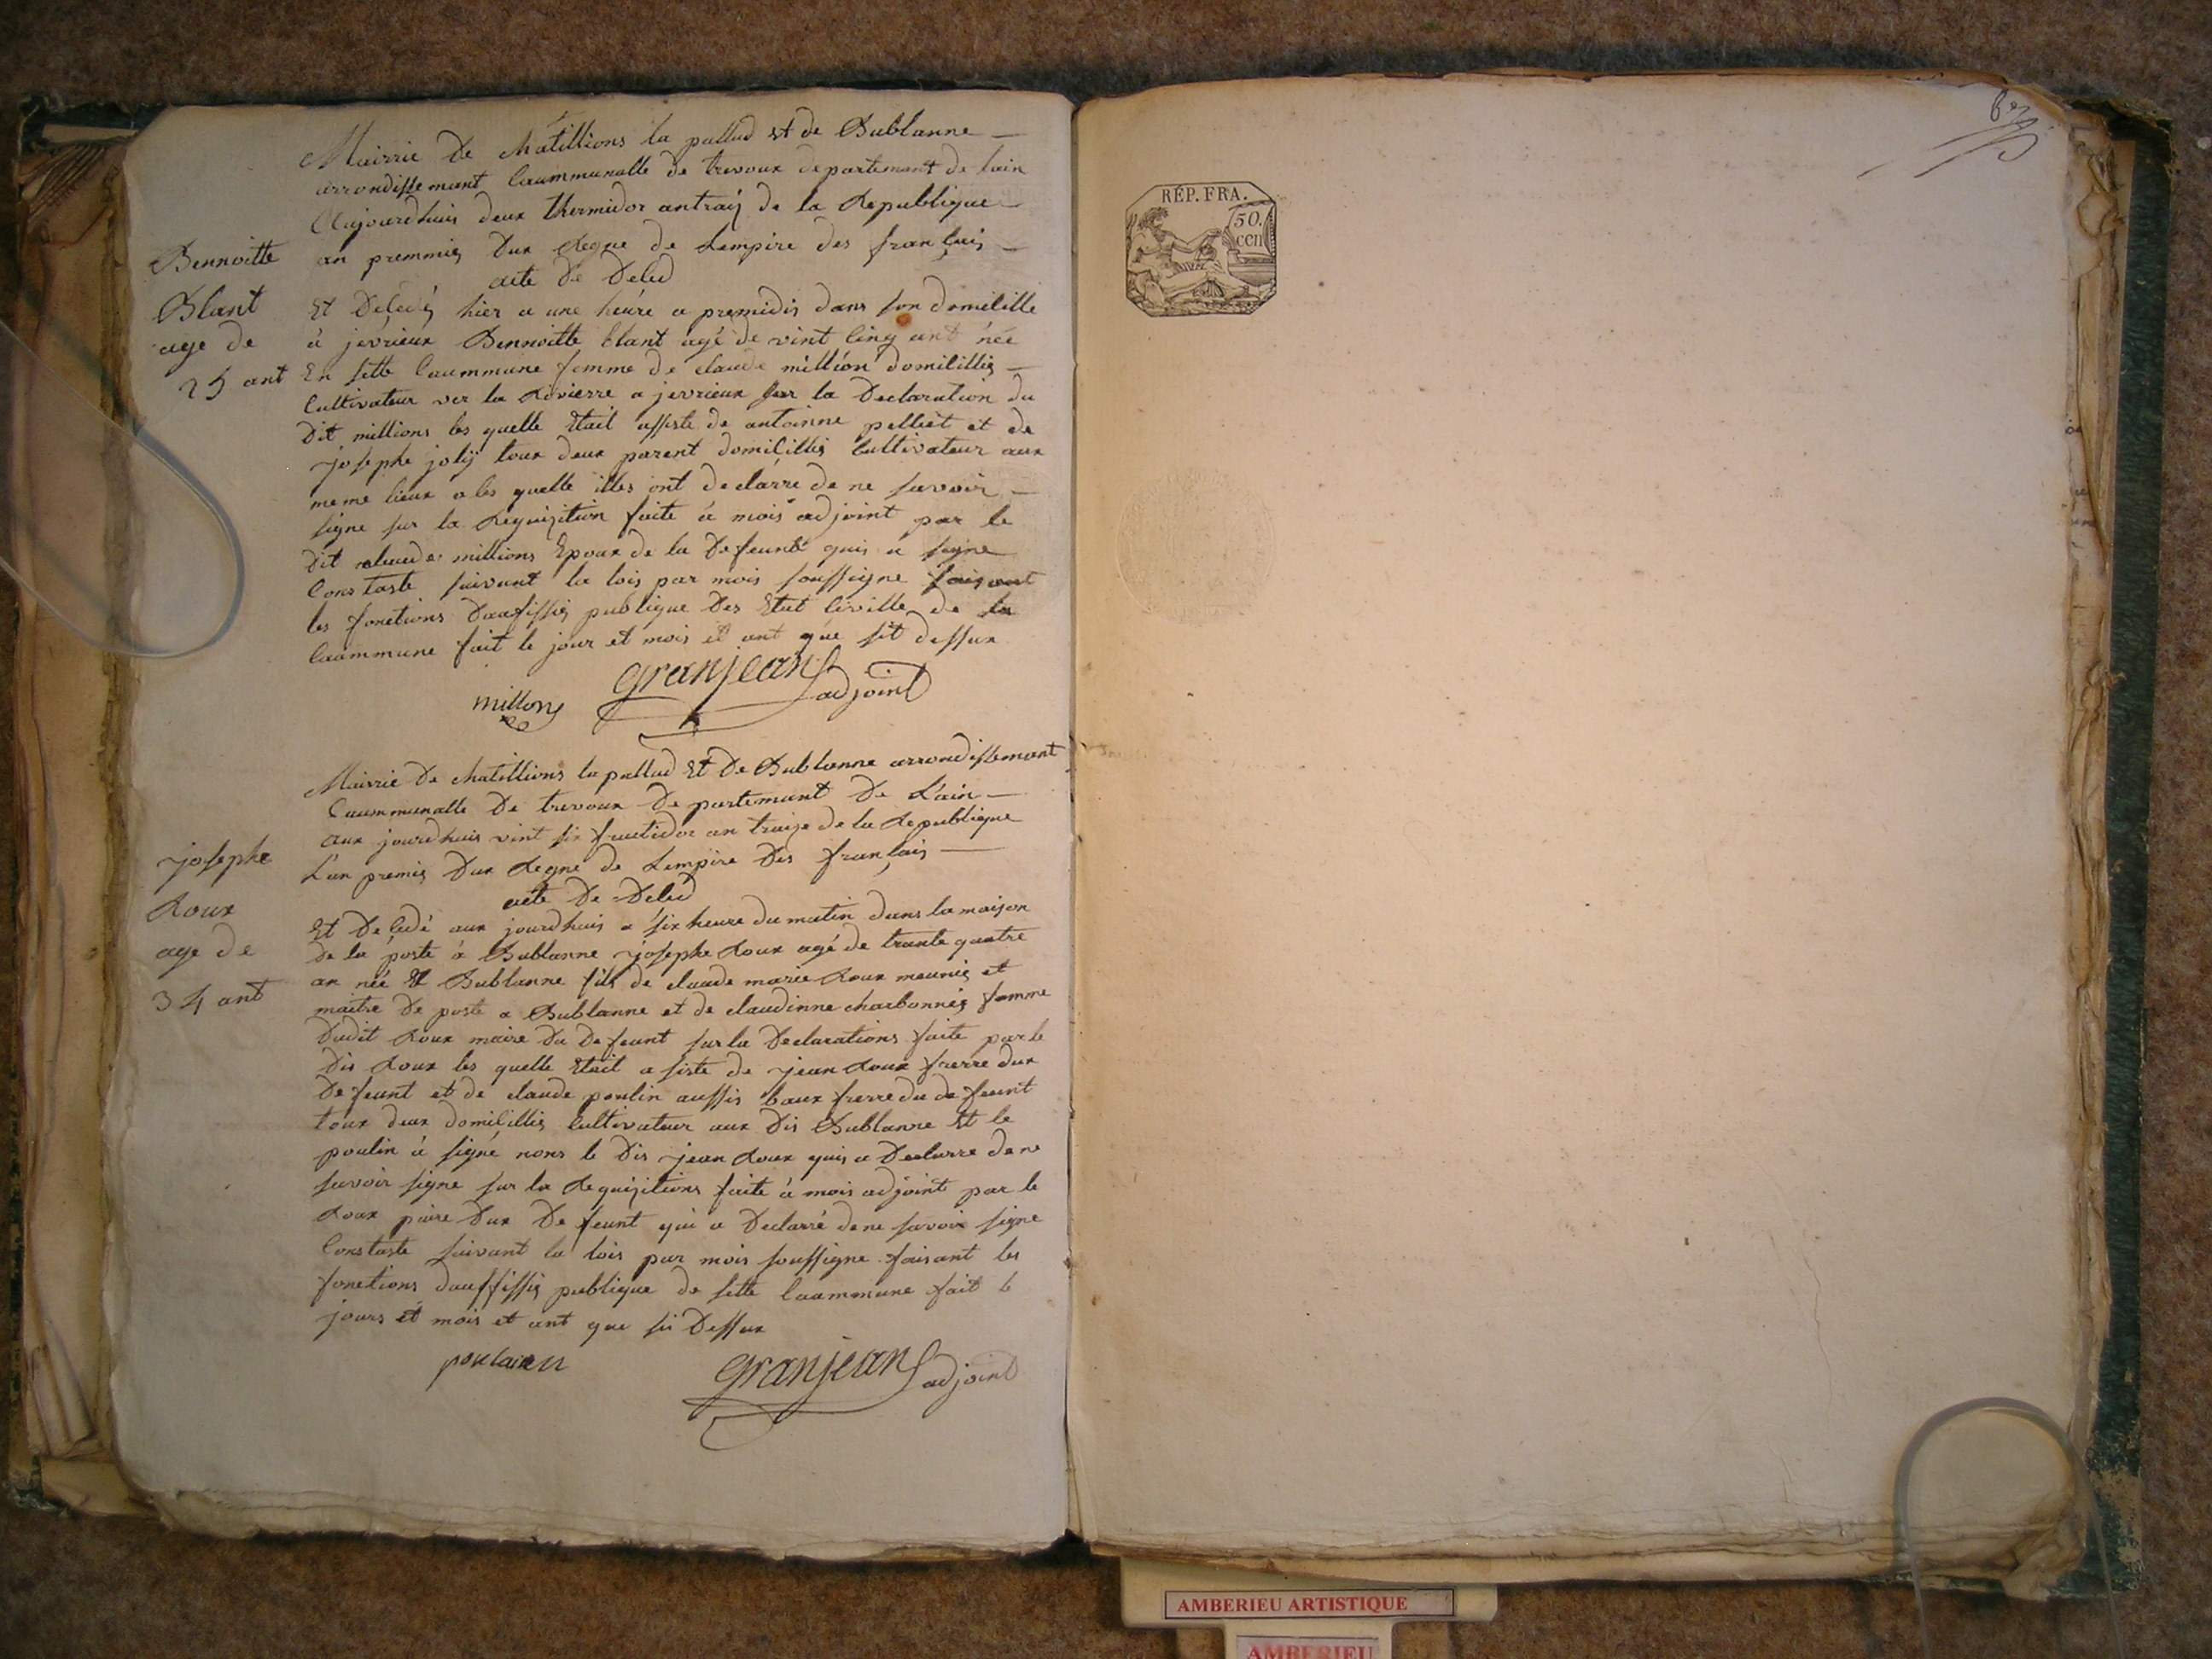 Mairrie de chatillions la pallud et de Bublanne
arrondissemant Caummunalle de trevoux departemant de lain
Aujourdhuis deux thermidor antraiz de la Republique
an premmiez dux Regne de Lempire des franÇais
acte de Deled
Bennoitte
Blant
age de
25 ant
Et DeCedéz hier a une heure a premidis dans son domiCille
à jévrieux Bennoitte blant agé de vint Cinq ant née
En sette Caummune femme de claude million domiCilliez
Cultivateur ver la Rivierre a jevrieux sur la Declaration du
Dit millions les quelle Etait assiste de antoinne pelliet et de
josephe joly toux deux parent domiCilliés Cultivateur aux
meme lieux a les quelle illes ont declarré de ne savoir
signe sur la Requizition faite à mois adjoint par le
dit claude millions Epoux de la Defeunte quis a signe
Constaste suivant la lois par mois soussigne faisant
les fonctions Dauffissiez publique Des Etat Civille de la
Caummune fait le jour et mois et ant que sit dessux
millony granjean adjoint
Mairrie De chatillions la pallud Et De Bublanne arrondissemant
Caummunalle De trevoux Departemant De L'ain
aux jourdhuis vint six fructidor an traize de la Republique
L'an premiez Dux Regne de Lempire Des franÇais
acte De Deled
josephe
Roux
age de
34 ant
Et DeCedé aux jourdhuis a six heure du matin dans la maison
De la poste à Bublanne josephe Roux agé de trante quatre
an née à Bublanne fils de claude marie Roux meuniez et
maitre De poste a Bublanne et de claudinne charbonniez femme
Dudit Roux maire Du Defeunt sur la Declarations faite par le
Dis Roux les quelle Etait a siste de jean Roux frerre dux
Defeunt et de claude poulin aussis baux frerre du defeunt
toux deux domiCilliez Cultivateur aux Dis Bublanne Et le
poulin à signé nons le Dis jean Roux quis a Declarre de ne
savoir signe sur la Requizitions faite à mois adjoint par le
Roux paire Dux Defeunt qui a Declarré de ne savoir signe
Constaste suivant la lois par mois soussigne faisant les
fonctions dauffissiez publique de sette Caummune fait le
jours et mois et ant que si Dessux
poulain granjean adjoint
RÉP. FRA.
50.
AMBERIEU ARTISTIQUE
AMBERIEU